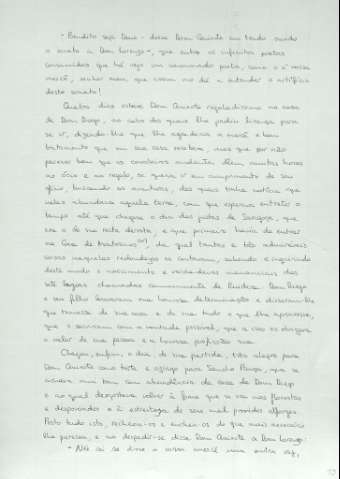 - Bendito seja Deus - disse Dom Quixote em tendo ouvido
o soneto a Dom Lorenzo -, que entre os infinitos poetas
consumidos que há vejo um consumado poeta, como o é vossa
mercê, senhor meu, que assim mo dá a entender o artifício
deste soneto!
Quatro dias esteve Dom Quixote regaladíssimo na casa
de Dom Diego, ao cabo dos quais lhe pediu licença para
se ir, dizendo-lhe que lhe agradecia a mercê e bom
tratamento que em sua casa recebera, mas que por não
parecer bem que os cavaleiros andantes dêem muitas horas
ao ócio e ao regalo, se queria ir em cumprimento de seu
ofício, buscando as aventuras, das quais tinha notícia que
aquela terra, com que esperava entreter o
tempo até que chegasse o dia das justas de Saragoça, que
era o de sua reta derrota, e que primeiro havia de entrar
na Cova de Montesinos, da qual tantas e tão admiráveis
coisas naqueles redondezas se contavam, sabendo e inquirindo
deste modo o nascimento e verdadeiros mananciais das
sete lagoas chamadas comummente de Ruidera. Dom Diego
e seu filho louvaram sua honrosa determinação e disseram-lhe
que tomasse de sua casa e de sua tudo o que lhe aprouvesse,
que o serviriam com a vontade possível, que a isso os obrigava
o valor de sua pessoa e a honrosa profissão sua.
Chegou, enfim, o dia de sua partida, tão alegre para
Dom Quixote como triste e aziago para Sancho Pança, que se
achava mui bem com abundância da casa de Dom Diego
e ao qual desgostava voltar à fome que se usa nas florestas
e despovoados e à estreiteza de seus mal providos alforges.
Posto tudo isto, encheu-os do que mais necessário
lhe pareceu, e ao despedir-se disse Dom Quixote a Dom Lorenzo:
- Não sei se disse a vossa mercê uma outra vez,